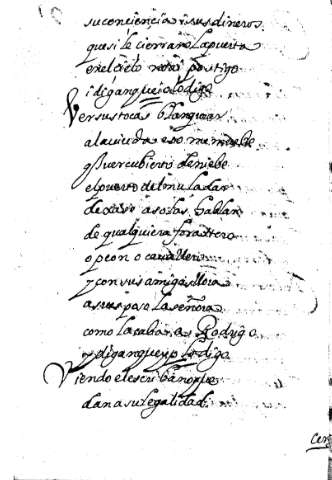 su conciencia i sus dineros
que si le cierran la puerta
en el cielo no ai postigo
i digan que io lo digo
Ver sus tocas blanquear
a la viuda eso me mueve
q̃ ver cubierto de nieve
el puerto del muladar
de a solas hablar
de qualquiera forastero
o peon o cavallero
y con sus amigas llora
a su esposo la señora
como la caba a Rodrigo
y digan que yo lo digo
Viendo el escribano que
dan a su legalidad